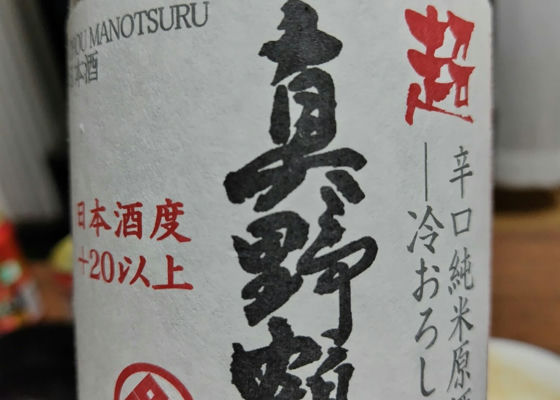 HOU MANOTSURU
本酒
超
辛口純米原酒
冷おろし
真野鶴
日本酒度
+20以上